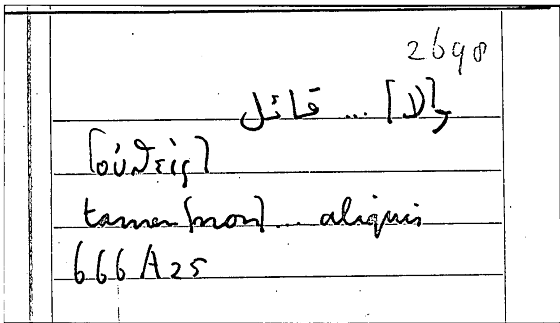 2698
و[لا] ... قائل
[οὐθείς]
tamen [non] ... aliquis
666A25